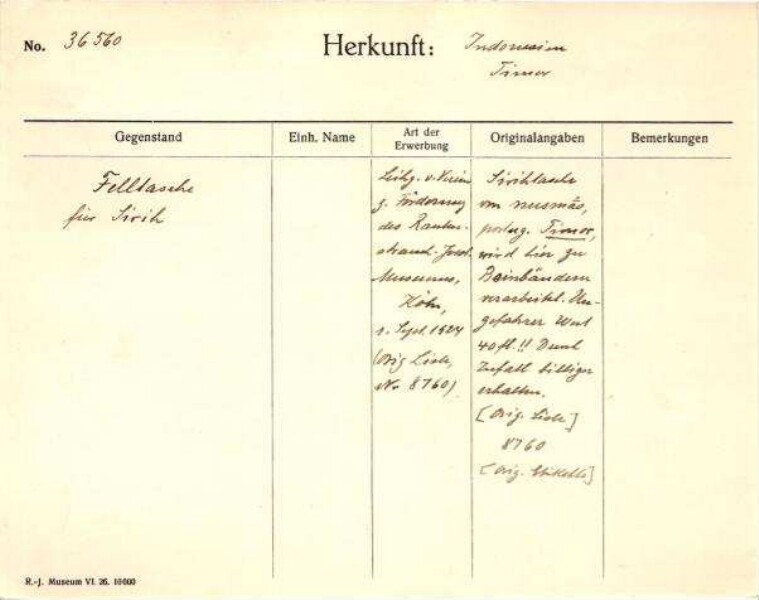 No. 36560
Herkunft: Indonesien
Timor
Gegenstand
Einh. Name
Art der
Erwerbung
Originalangaben
Bemerkungen
Felltasche
für Sirih
Leihg. v. Verein
z. Förderung
des Rauten-
strauch-Joest-
Museums,
Köln,
1. Sept. 1924
(Orig Liste,
Nr. 8760)
Sirihtasche
von
portug. Timor,
wird hier zu
Beinbändern
verarbeitet. Un-
gefährer Wert
40 fl.!! Durch
Zufall billiger
erhalten.
[Orig. Liste]
8760
[Orig. Etikette]
R.-J. Museum VI. 26. 10000